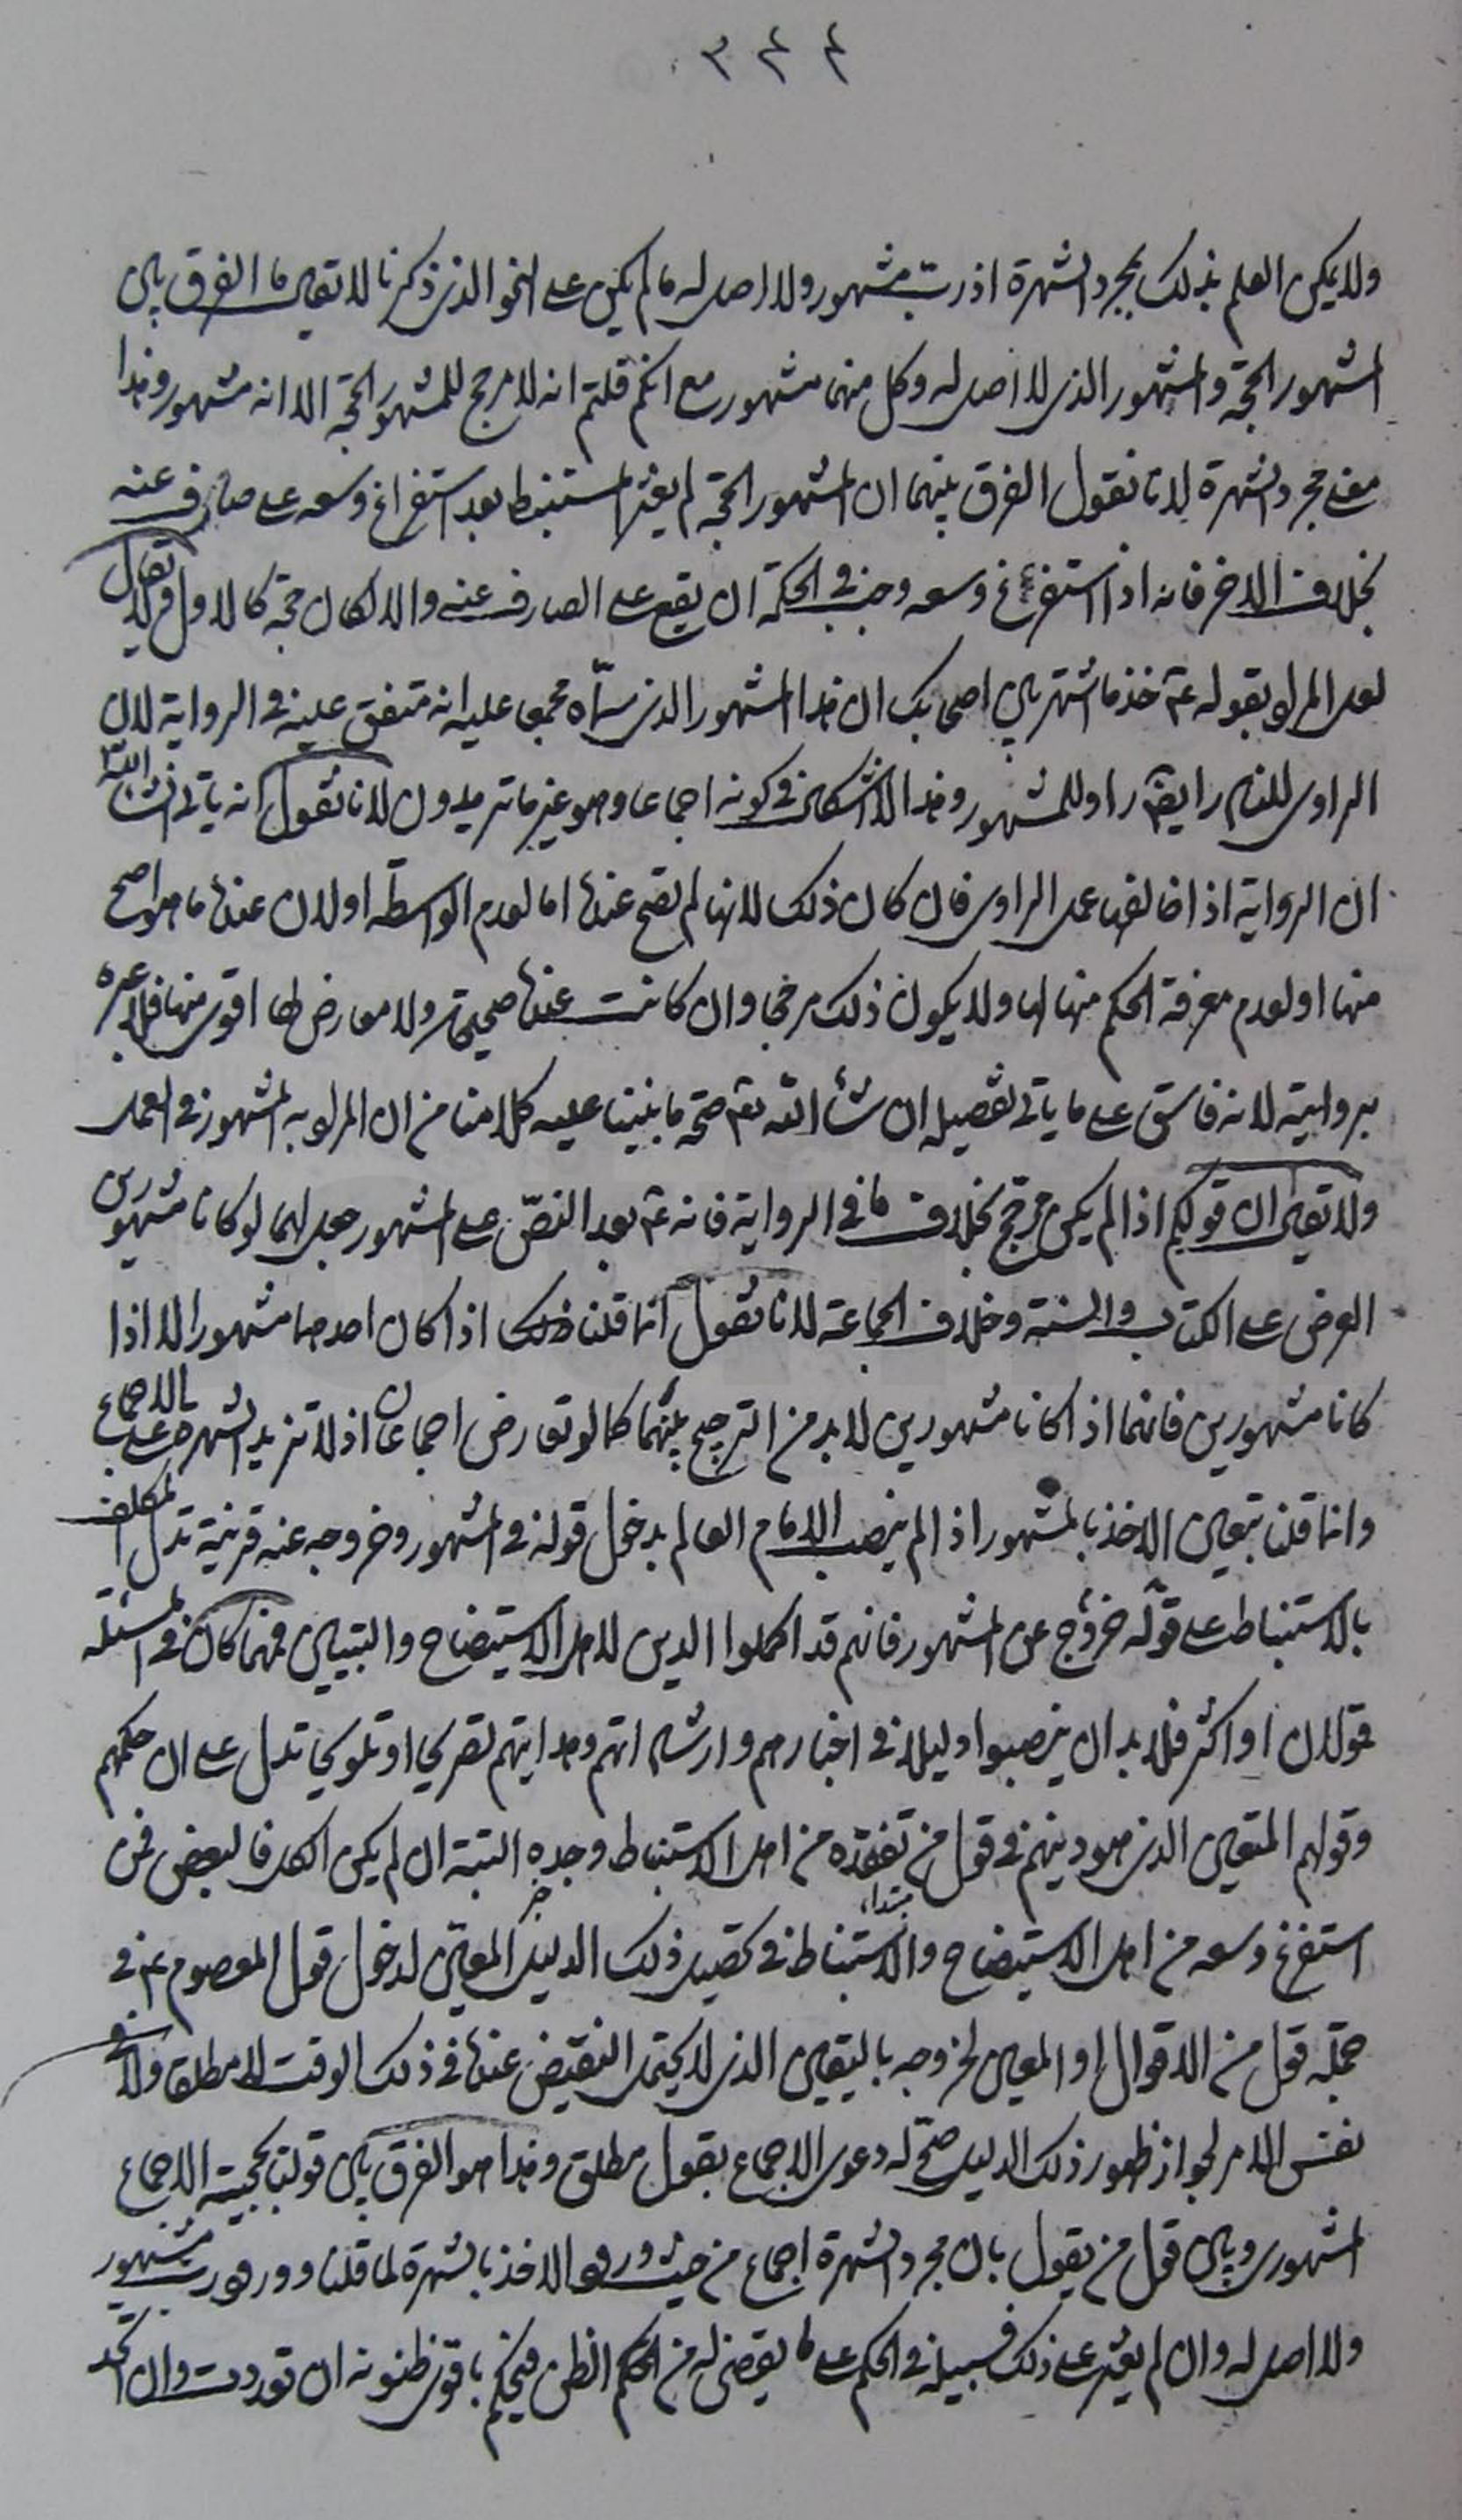 ٣٤٤
ولا يكن العلم بذلك بمجرد الشهرة اذ ربّ مشهور ولا اصل له ما لم يكن على النحو الذى ذكرنا لا تقل ما الفرق بين
المشهور الحجّة والمشهور الذى لا اصل له وكل منهما مشهور مع انكم قلتم انه لا مرجح للمشهور الحجّة الا انه مشهور وهذا
معنى مجرد الشهرة لانا نقول الفرق بينهما ان المشهور الحجّة لم يعثر المستنبط بعد استفراغ وسعه على صارف عنه
بخلاف الاخر فانه اذا استفرغ وسعه وجب فى الحكمة ان يقع على الصارف عنه والا لكان حجّة كالاول ولا يقال
لعل المراد بقوله ع خذ ما اشتهر بين اصحابك ان هذا المشهور الذى سمّاه مجمعا عليه انه متفق عليه فى الرواية لان
الراوى للنادر ايضا راو للمشهور وهذا لا اشكال فى كونه اجماعا وهو غير ما تريدون لانا نقول انه ياتى انشاء الله
ان الرواية اذا خالفها عمل الراوى فان كان ذلك لانها لم تصح عنده اما لعدم الواسطة او لان عنده ما هو اصح
منها او لعدم معرفة الحكم منها ولا يكون ذلك مرجحا وان كانت عنده صحيحة ولا معارض لها اقوى منها فلا عبرة
بروايته لانه فاسق على ما ياتى تفصيله ان شاء الله تع صحّة ما بنينا عليه كلامنا من ان المراد به المشهور فى العمل
ولا تقل ان قولكم اذا لم يكن مرجح بخلاف ما فى الرواية فانه ع بعد النصّ على المشهور جعل لهما لو كانا مشهورين
العرض على الكتاب والسنة وخلاف الجماعة لانا نقول انما قلنا ذلك اذا كان احدهما مشهورا الا اذا
كانا مشهورين فانهما اذا كانا مشهورين لا بد من الترجيح بينهما كما لو تعارض اجماعان اذ لا تزيد الشهرة على الاجماع
وانما قلنا بتعين الاخذ بالمشهور اذا لم ينصب الامام العالم بدخول قوله فى المشهور وخروجه عنه قرينة تدل المكلف
بالاستنباط على قوله خروج عن المشهور فانهم قد اكملوا الدين لاهل الاستيضاح والتبيين فمهما كان فى المسئلة
قولان او اكثر فلا بد ان ينصبوا دليلا فى اخبارهم وارشاداتهم وهدايتهم تصريحا او تلويحا تدل على ان حكمهم
وقولهم المتعين الذى هو دينهم فى قول من تفقده من اهل الاستنباط وجده البتة ان لم يكن الكل فالبعض فمن
استفرغ وسعه من اهل الاستيضاح والاستنباط فى تحصيل ذلك الدليل المعيّن لدخول قول المعصوم ع فى
جملة قول من الاقوال او المعين لخروجه باليقين الذى لا يحتمل النقيض عنده فى ذلك الوقت لا مطلقا ولا فى
نفس الامر لجواز ظهور ذلك الدليل صحّ له دعوى الاجماع بقول مطلق وهذا هو الفرق بين قولنا بحجية الاجماع
المشهورى وبين قول من يقول بان مجرد الشهرة اجماع من حيث ورود الاخذ بالشهرة لما قلنا وورود رب مشهور
ولا اصل له وان لم يعثر على ذلك فسبيله فى الحكم على ما يقتضى له من الحكم الظنى فيحكم باقوى ظنونه ان تعددت وان اتحد